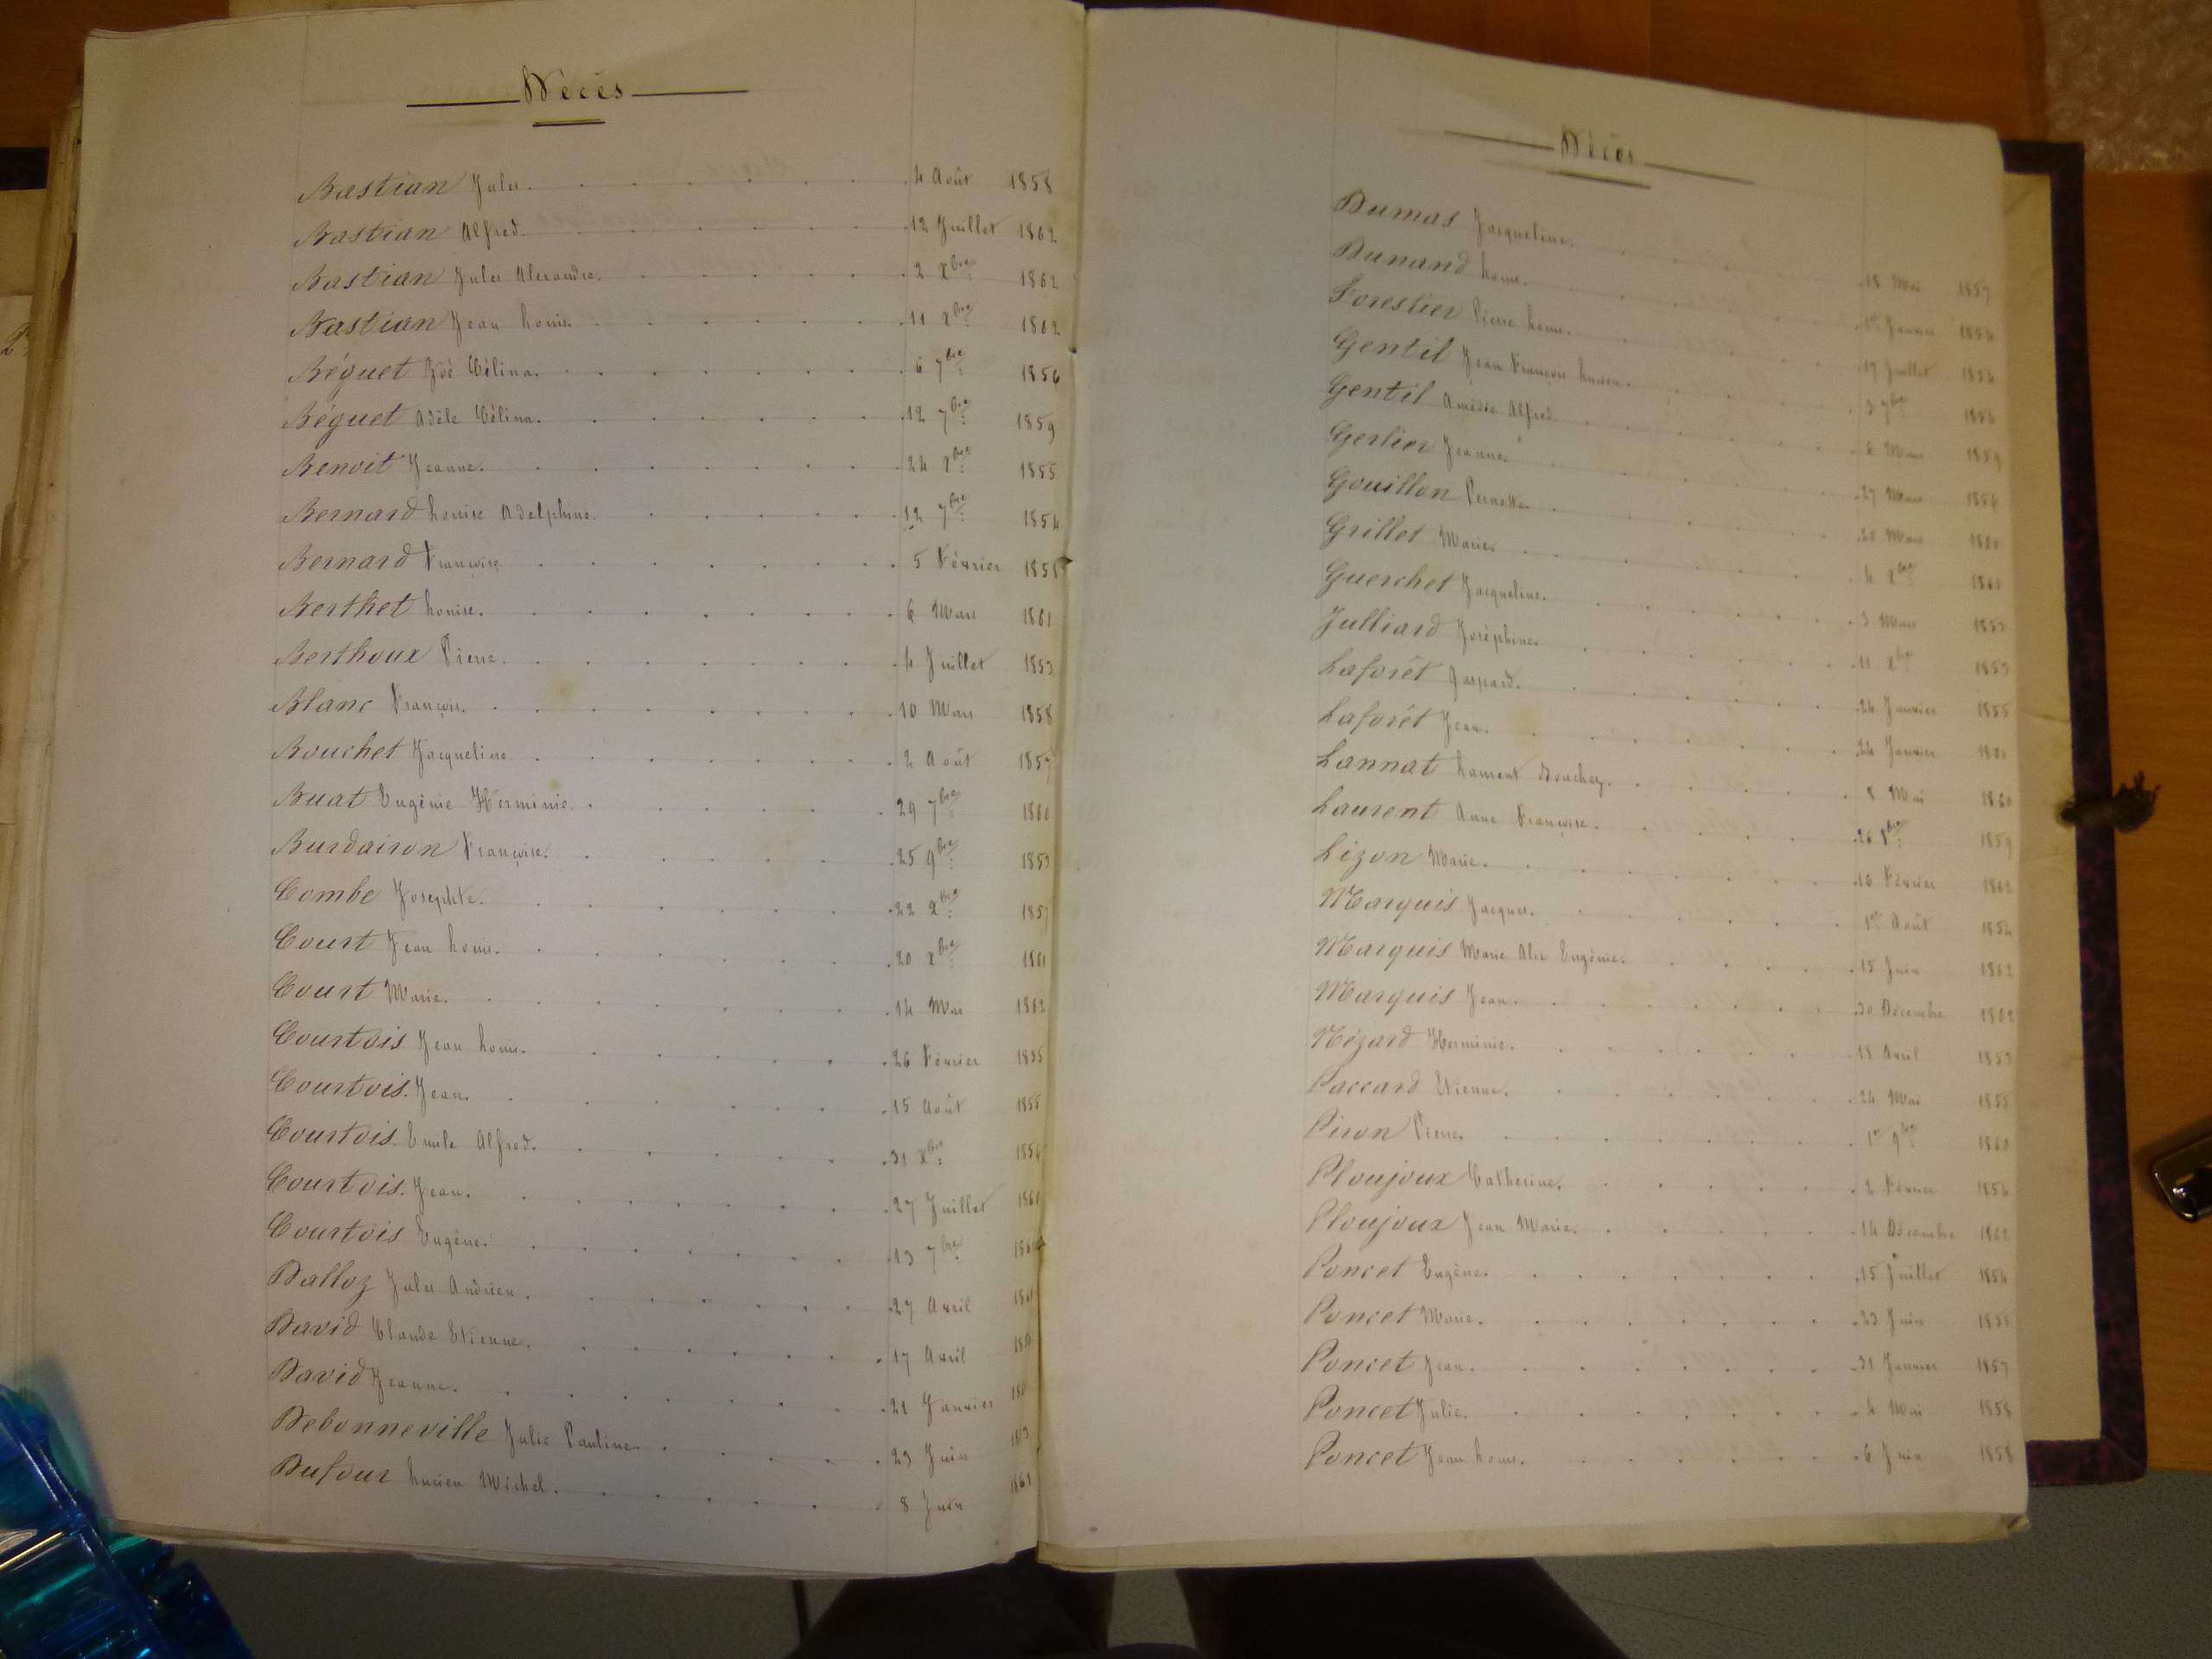 Décès
Bastian Jules. 4 Août 1858
Bastian Alfred 12 Juillet 1862
Bastian Jules Alexandre. 2 Xbre 1862
Bastian Jean Louis. 11 Xbre 1862
Béguet Zoé Célina. 6 7bre 1856
Béguet Adèle Célina. 12 7bre 1859
Benoit Jeanne. 24 Xbre 1855
Bernard Louise Adelphine. 12 7bre 1854
Bernard Françoise 5 Février
Berthet Louise. 6 Mars 1861
Berthoux Pierre. 4 Juillet 1853
Blanc François. 10 Mars 1858
Bouchet Jacqueline 2 Août 1857
Buat Eugénie Herminie. 29 7bre 1860
Burdairon Françoise. 25 9bre 1853
Combe Josephte. 22 Xbre 1857
Court Jean Louis. 20 Xbre 1861
Court Marie. 14 Mai 1862
Courtois Jean Louis. 26 Février 1855
Courtois. Jean. 15 Août 1855
Courtois. Emile Alfred. 31 Xbre 1856
Courtois. Jean. 27 Juillet 1860
Courtois Eugène. 13 7bre
Dalloz Jules Andrien. 27 Avril
David Claude Etienne. 17 Avril
David Jeanne. 21 Janvier
Debonneville Julie Pauline. 23 Juin
Dufour Lucien Michel. 8 Juin 1861
Décès
Dumas Jacqueline. 18 Mai 1857
Dunand Louis. 1er Janvier 1854
Forestier Pierre Louis. 17 Juillet 1854
Gentil Jean François Lucien. 3 7bre 1854
Gentil Amédée Alfred. 6 Mars 1859
Gerlier Jeanne. 27 Mars 1856
Gouillon Pernette. 20 Mars 1860
Grillet Marie. 4 Xbre
Guerchet Jacqueline. 3 Mars 1853
Julliard Joséphine. 11 Xbre 1853
Laforêt Gaspard. 24 Janvier 1855
Laforêt Jean. 24 Janvier
Lannat Laurent Bouchez. 8 Mai 1860
Laurent Anne Françoise. 26 1859
Lizon Marie. 16 Février 1862
Marquis Jacques. 1er Août 1854
Marquis Marie Alix Eugénie. 15 Juin 1862
Marquis Jean. 30 Décembre 1862
Mézard Herminie. 18 Avril 1853
Paccard Etienne. 24 Mai 1855
Piron Pierre. 1er 9bre 1860
Ploujoux Catherine. 2 Février 1854
Ploujoux Jean Marie. 14 Décembre 1862
Poncet Eugène. 15 Juillet 1854
Poncet Marie. 23 Juin 1855
Poncet Jean. 31 Janvier 1857
Poncet Julie. 4 Mai 1858
Poncet Jean Louis. 6 Juin 1858